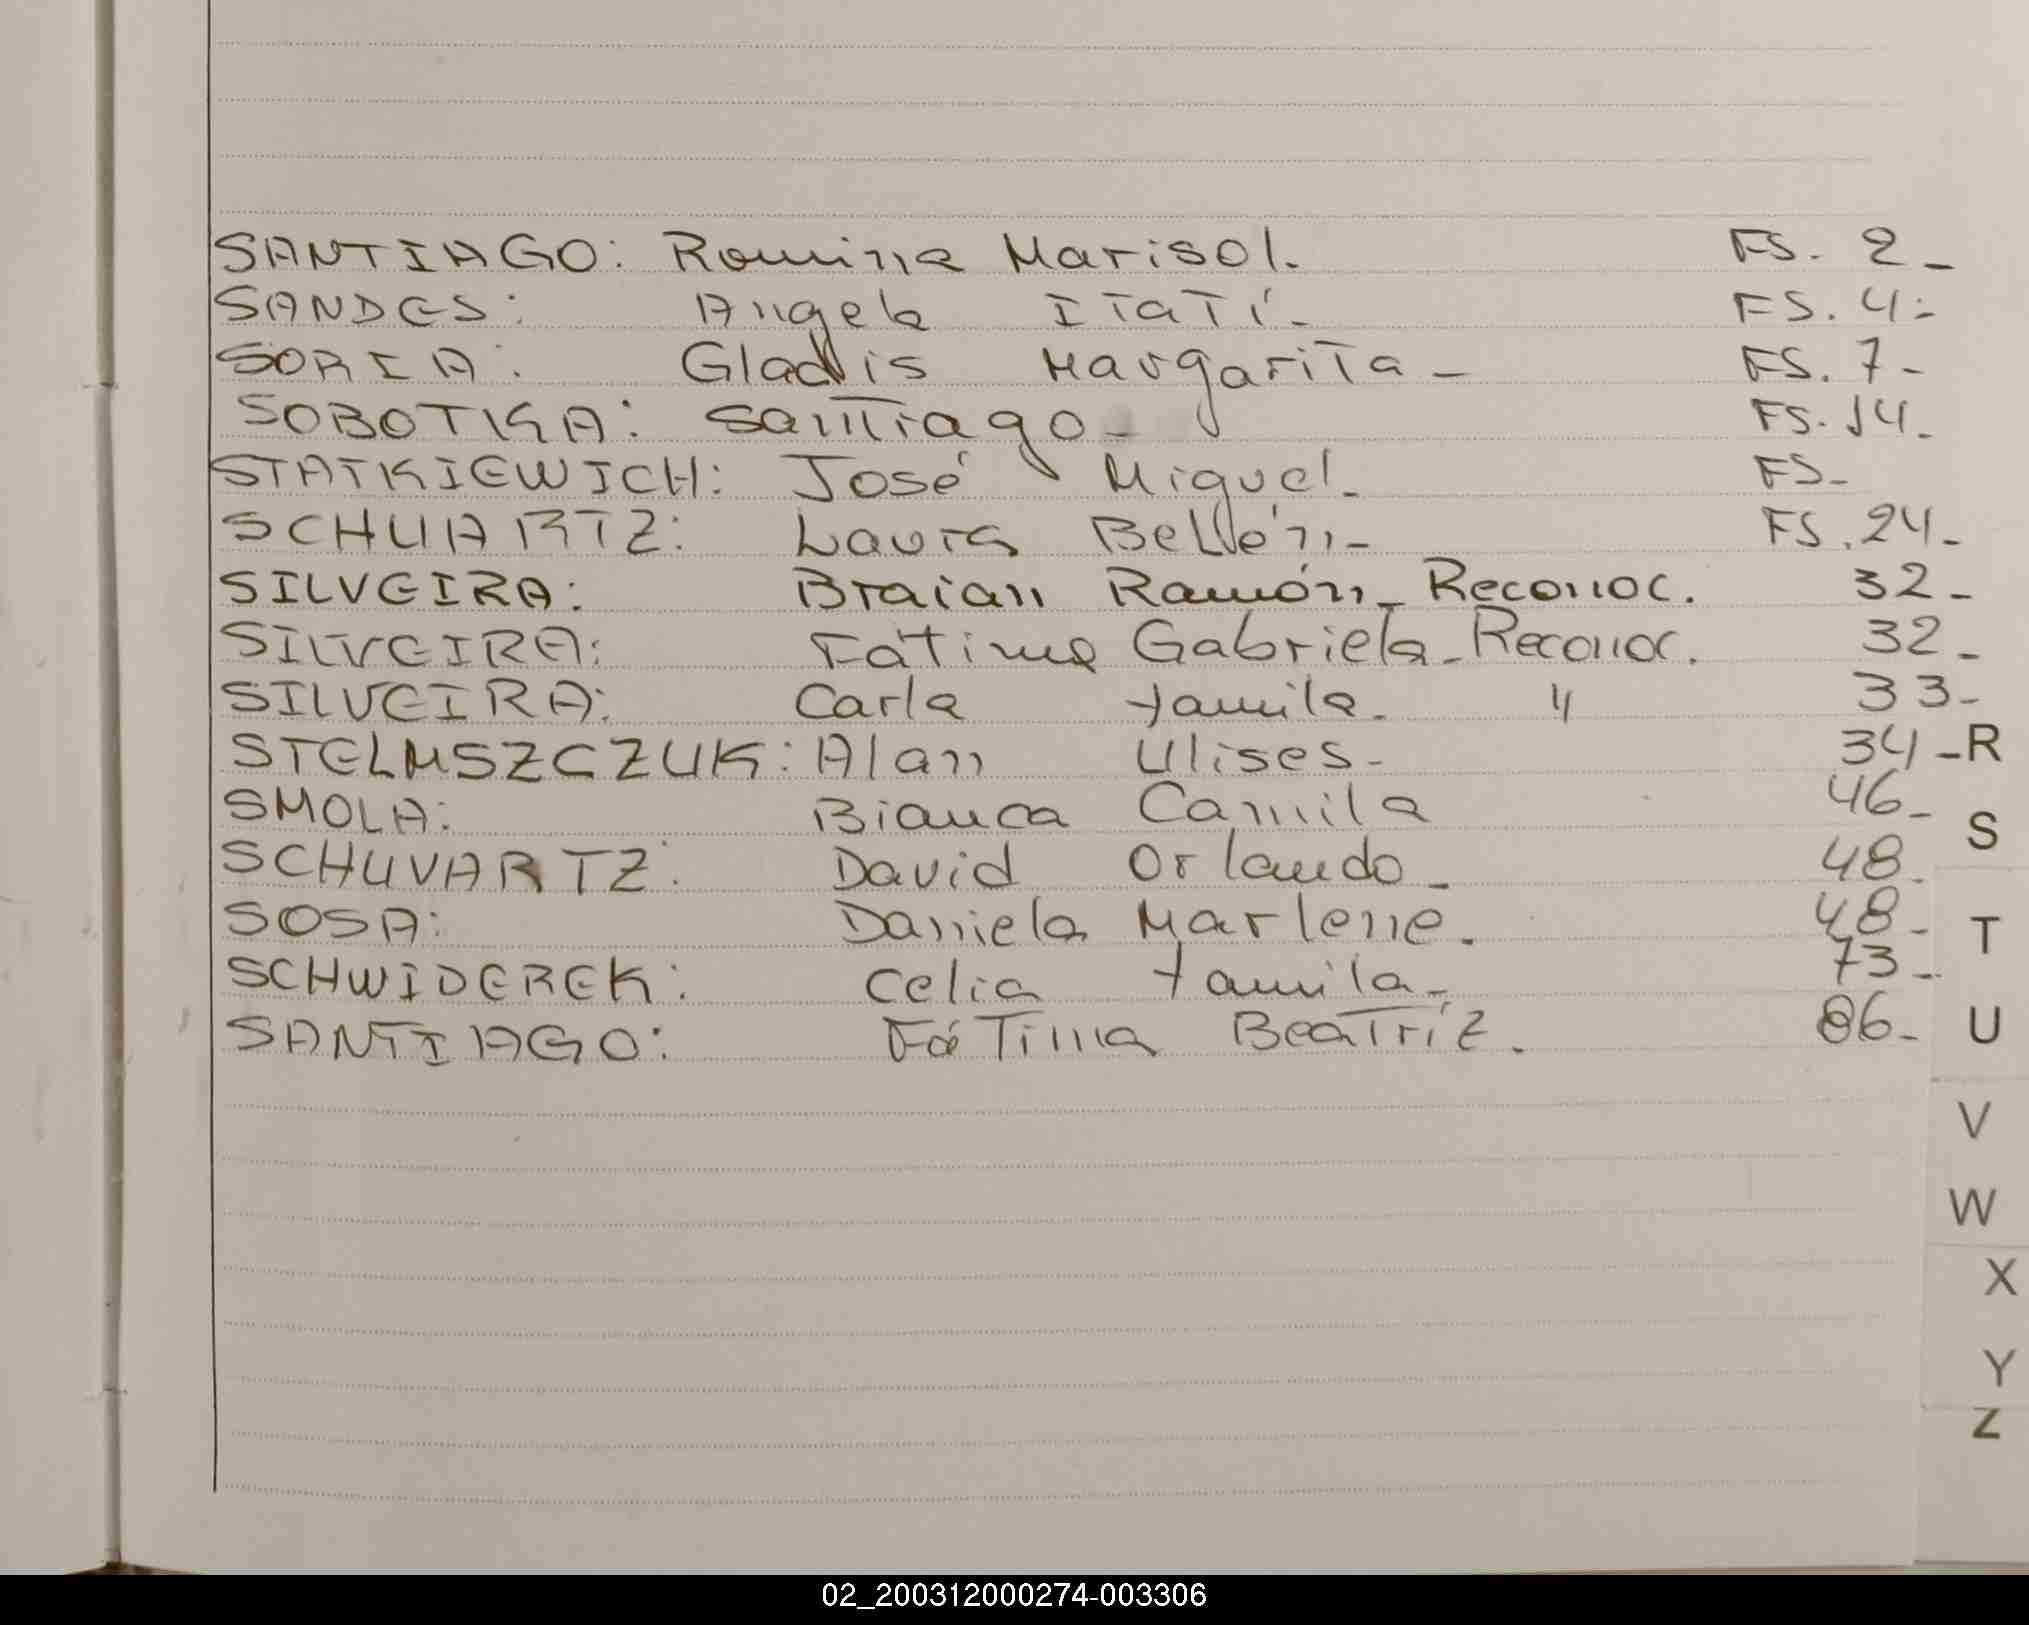 SANTIAGO: Romina Marisol. FS. 2-
SANDES: Angela ITaTí- FS. 4-
SORIA: Gladis Margarita- FS. 7-
SOBOTKA: Santiago- FS. 14-
STATKIEWICH: José Miguel- FS-
SCHUARTZ: Laura Belén- FS. 24-
SILVEIRA: Braian Ramón- Reconoc. 32-
SILVEIRA: Fátima Gabriela- Reconoc. 32-
SILVEIRA: Carla Yamila- " 33-
STELMSZCZUK: Alan Ulises- 34-
SMOLA: Bianca Camila 46-
SCHUVARTZ: David Orlando- 48-
SOSA: Daniela Marlene. 48-
SCHWIDEREK: Celia Yamila- 73-
SANTIAGO: Fátima Beatríz. 86-
R
S
T
U
V
W
X
Y
Z
02_200312000274-003306